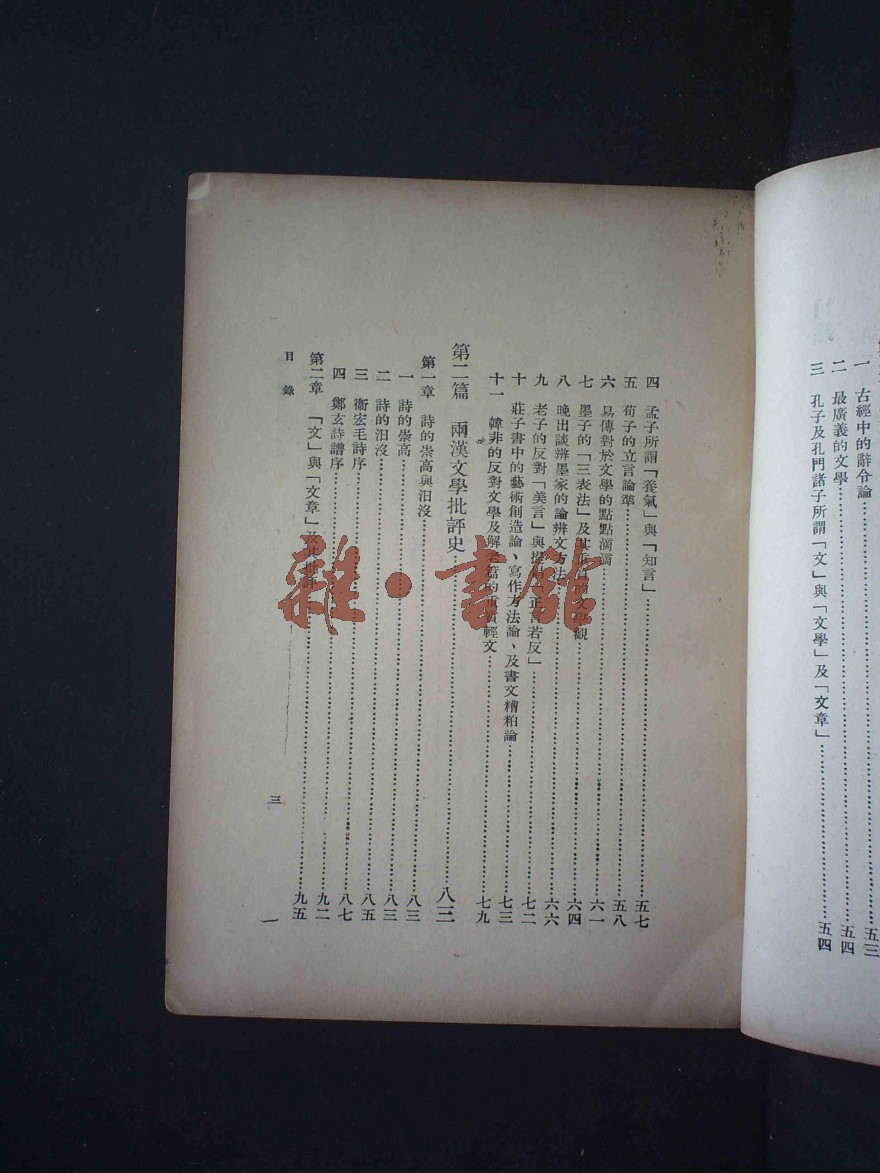 一　古經中的辭令論……五三
二　最廣義的文學……五四
三　孔子及孔門諸子所謂「文」與「文學」及「文章」……五四
四　孟子所謂「養氣」與「知言」……五七
五　荀子的立言論準……五八
六　易傳對於文學的點點滴滴……六一
七　墨子的「三表法」及其……的文學觀……六四
八　晚出談辨墨家的論辨文方法……六六
九　老子的反對「美言」與提倡「正言若反」……七二
十　莊子書中的藝術創造論、寫作方法論、及書文糟粕論……七三
十一　韓非的反對文學及解老篇的重質輕文……七九
第二篇　兩漢文學批評史……八三
第一章　詩的崇高與汨沒……八三
一　詩的崇高……八三
二　詩的汨沒……八五
三　衞宏毛詩序……八七
四　鄭玄詩譜序……九二
第二章　「文」與「文章」及其批評……九五
目錄
三
一
雜·書館